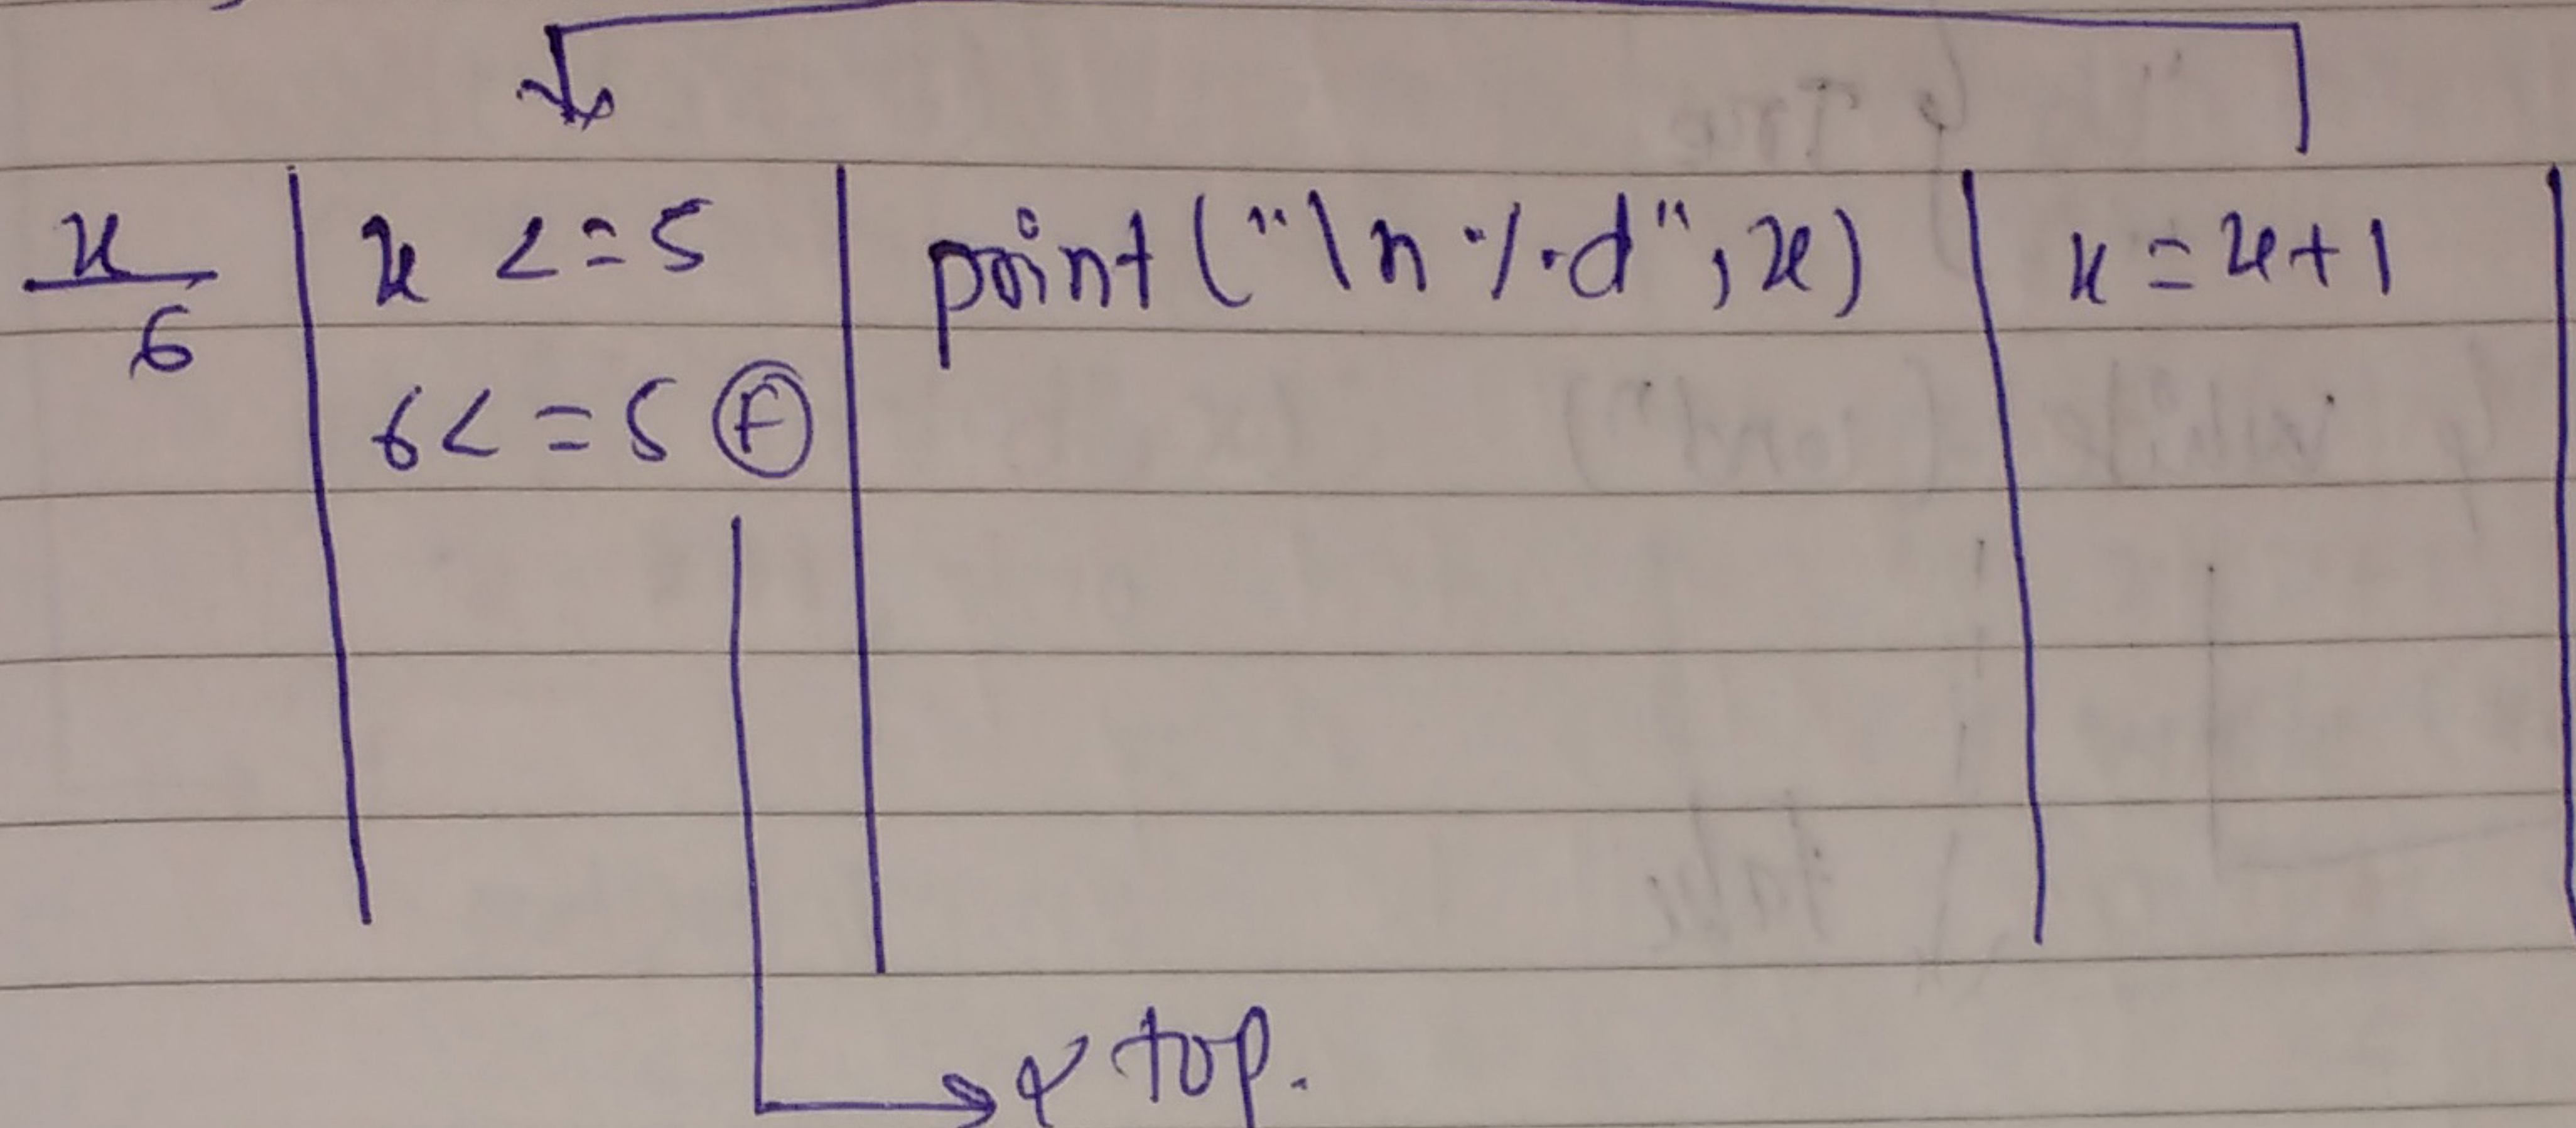 x x <=5 print("\n%d",x) x=x+1
6
6<=5 F
stop.